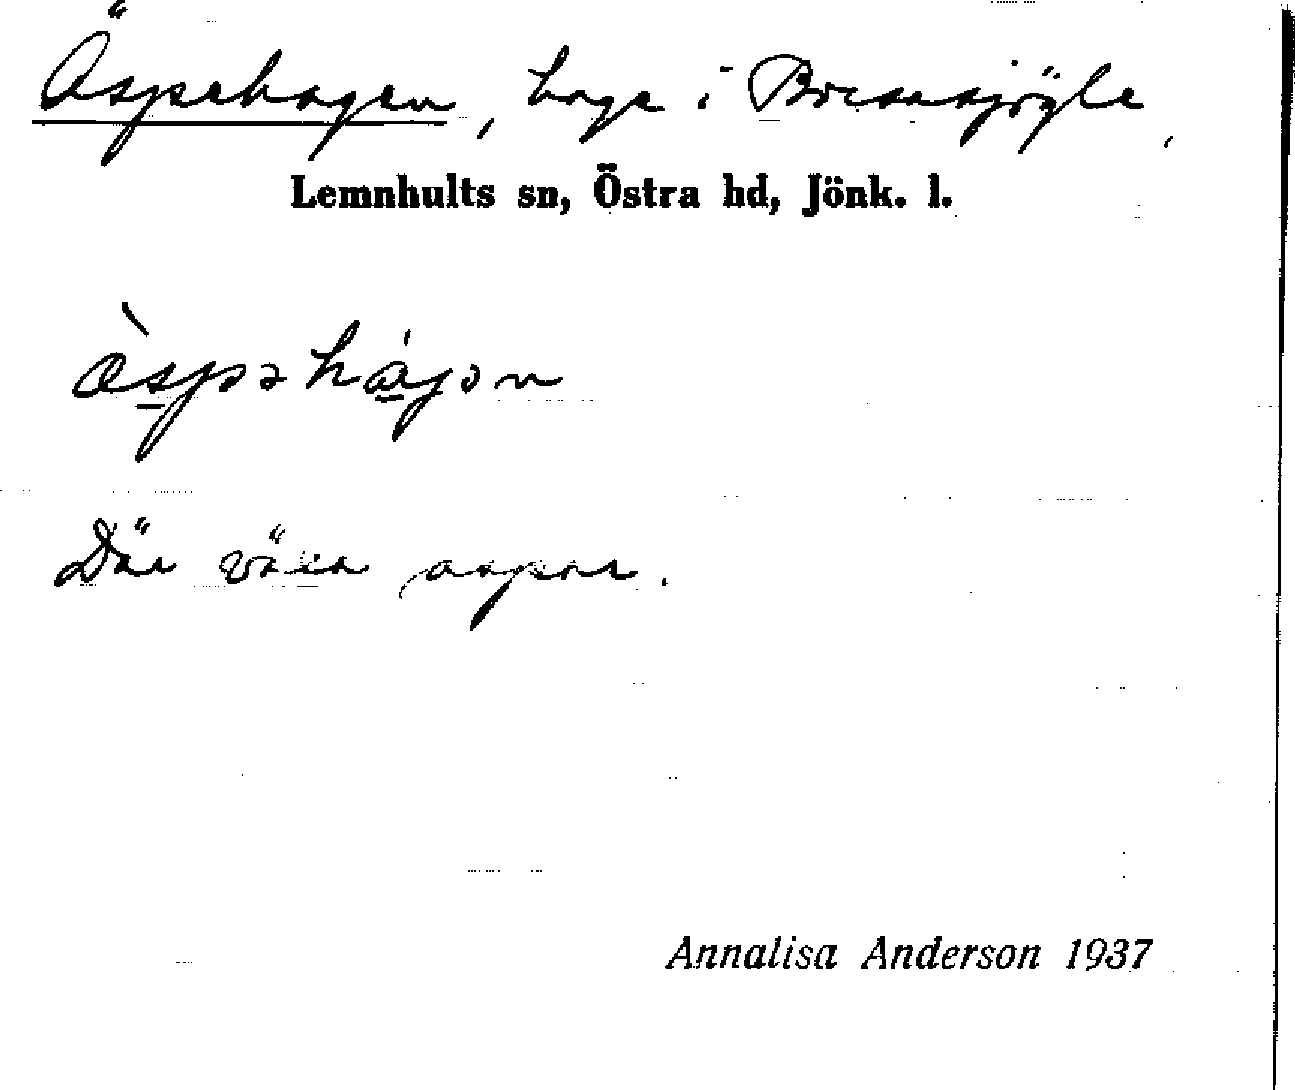 Äspehagen, hage i Boeansjögle,
Lemnhults sn, Östra hd, Jönk. l.
æ̀spəhágən
Där växa aspar.
Annalisa Anderson 1937